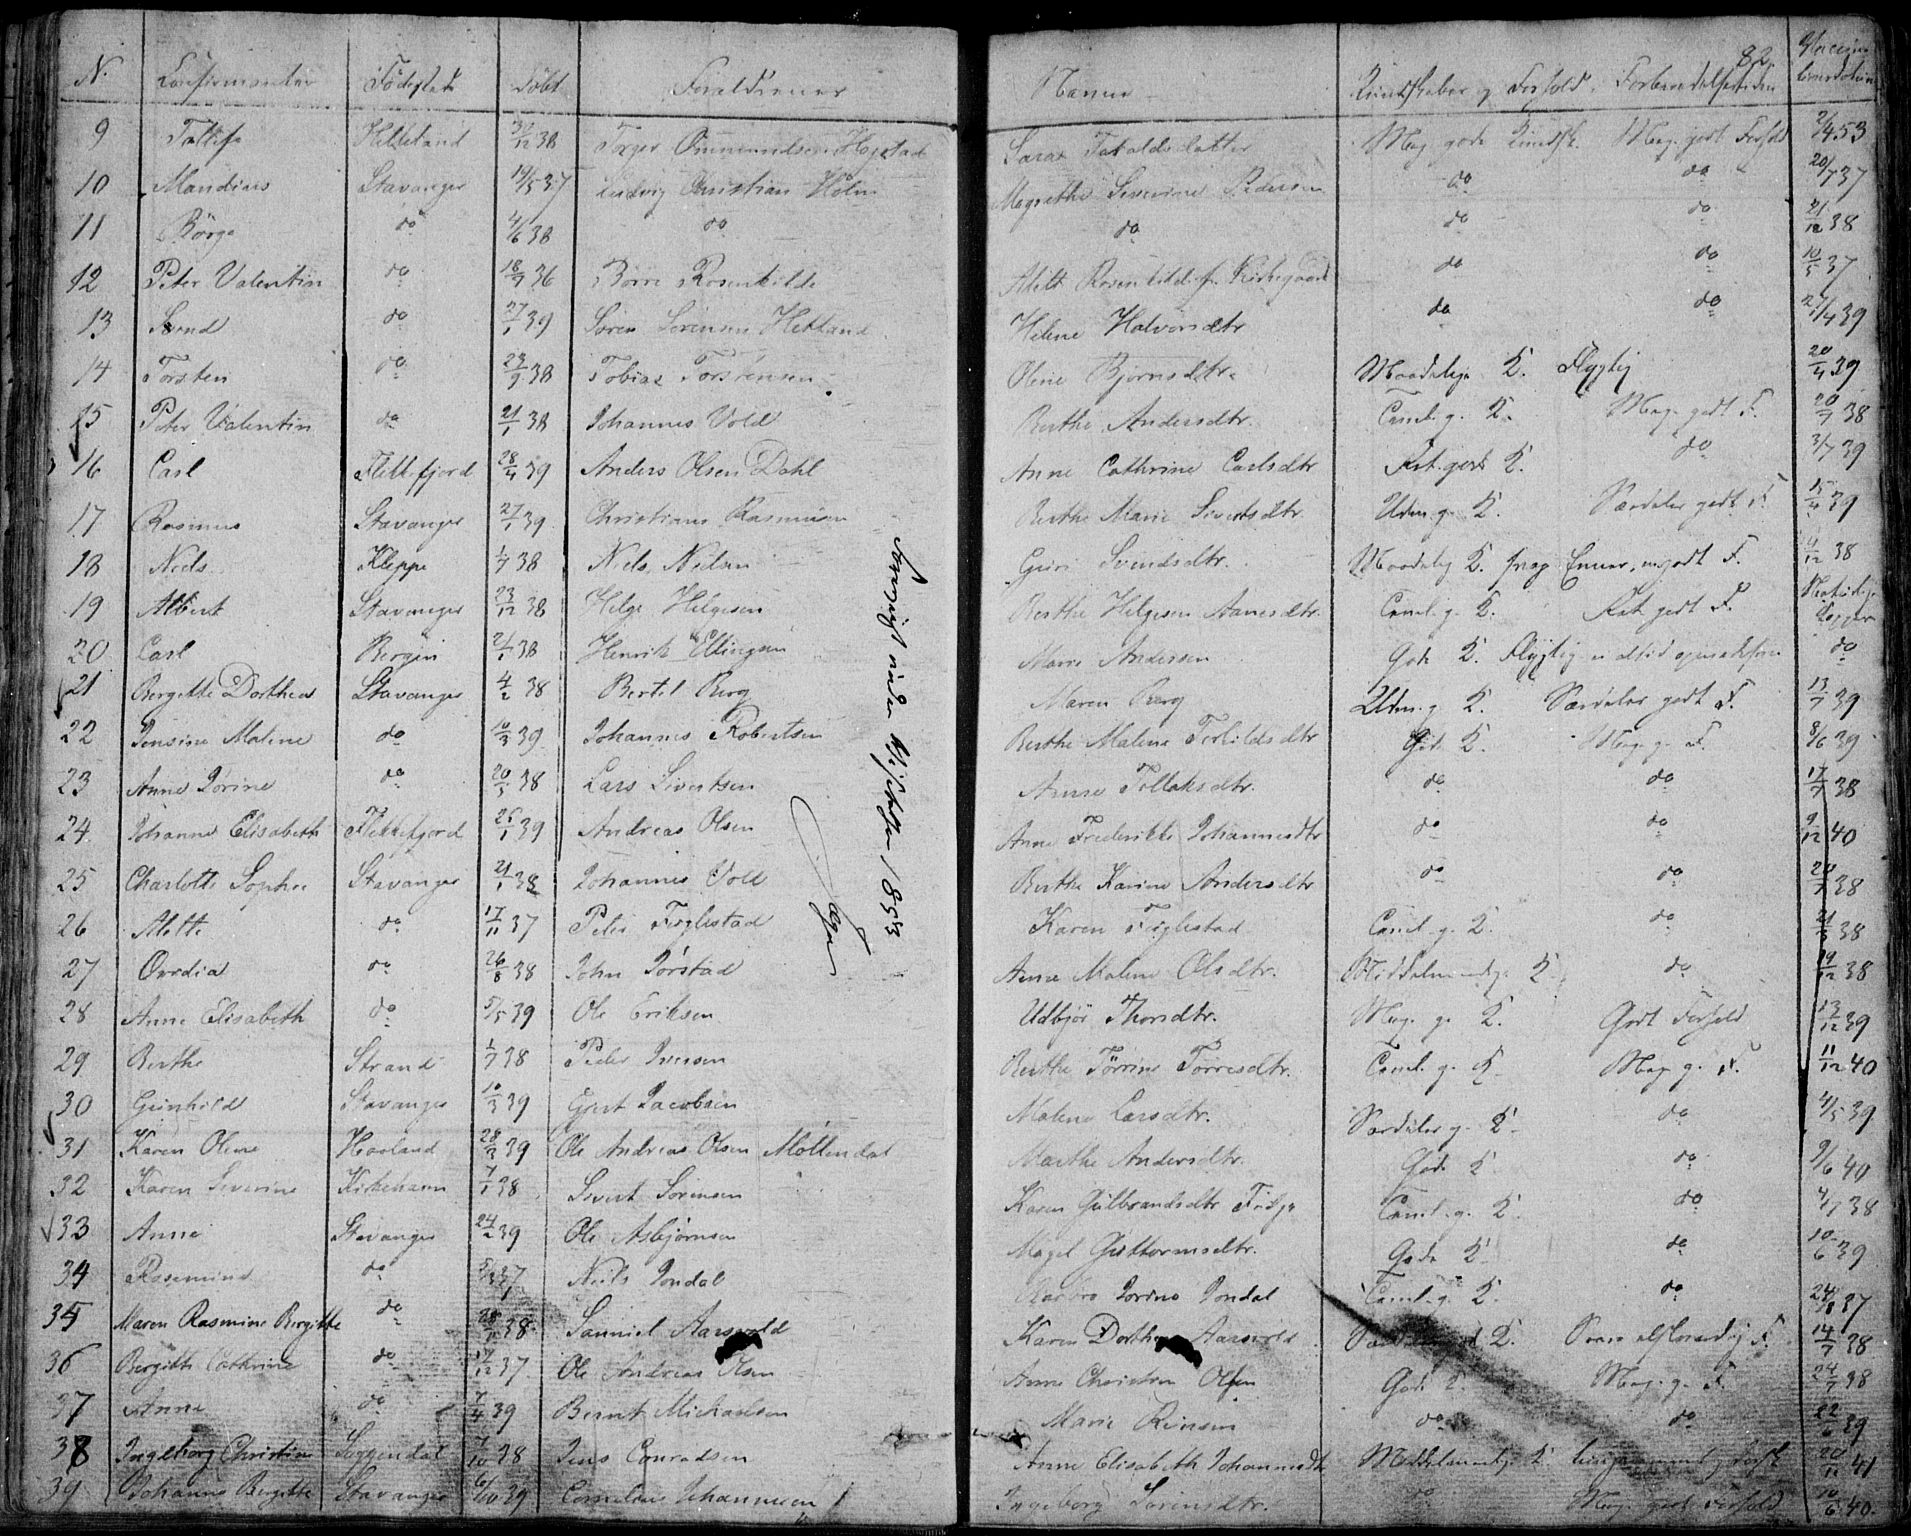 82.
N. Confirmanter Fødested Døbt Forældrenes Navne Kundskaber og Forhold. Forberedelsestiden Vaccinationsdatum
9 Tollef Hetland 30/12 38 Torger Ommundsen Hogstad Sara Tobaldsdatter Meg. gode Kundsk. Meg. godt Forhold 2/4 53
10 Mandius Stavanger 19/5 37 Ludvig Christian Holm Magrethe Severine Pedersen do do 20/7 37
11 Børge do 4/6 38 do do do do 21/12 38
12 Peter Valentin do 18/9 36 Børre Rosenkilde Abelt Rosenkilde f. Kirkegaard do do 10/5 37
13 Svend do 27/1 39 Søren Sørensen Hetland Helene Halvorsdtr do do 27/4 39
14 Torsten do 23/9 38 Tobias Torstensen Oline Bjørnsdtr. Maadelige K. Flygtig 20/4 39
15 Peter Valentin do 21/1 38 Johannes Vold Berthe Andersdtr. Teml. g. K. Meg. godt F. 20/7 38
16 Carl Flekkefjord 28/4 39 Anders Olsen Dahl Anne Cathrine Carlsdtr Ret gode K. do 3/7 39
17 Rasmus Stavanger 27/1 39 Christian Rasmusen Berthe Marie Sivertsdtr. Udm. g. K. Særdeles godt F. 15/4 39
18 Niels Kleppe 1/7 38 Niels Nielsen Guri Svendsdtr. Maadelig K. 4/12 38
19 Albert Stavanger 23/12 38 Helge Helgesen Berthe Helgesen Aanesdtr. Teml. g. K. Ret godt F. Naturlige Kopper
20 Carl Bergen 2/1 38 Henrik Ellingsen Marie Andersen Gode K. Flygtig do
21 Bergitte Dorthea Stavanger 4/2 38 Bertel Berg Maren Berg Udm. g. K. Særdeles godt F. 13/7 39
22 Jensine Malene do 10/3 39 Johannes Robertsen Berthe Malene Torkildsdtr God. K. Meg. g. F. 8/6 39
23 Anne Jørine do 20/5 38 Lars Sivertsen Anne Tollaksdtr. do do 17/7 38
24 Johanne Elisabeth Flekkefjord 26/1 39 Andreas Olsen Anne Frederikke Johannesdtr do do 9/12 40
25 Charlotte Sophie Stavanger 21/1 38 Johannes Vold Berthe Karine Andersdtr do do 20/7 38
26 Mette do 17/11 37 Peter Fuglestad Karen Fuglestad Teml. g. K. do 21/3 38
27 Ovedia do 26/8 38 John Jørstad Anne Malene Olsdtr. Middelmaadige K. do 19/12 38
28 Anne Elisabeth do 5/5 39 Ole Eriksen Udbjør Thorsdtr. Meg. g. K. Godt Forhold 13/12 39
29 Berthe Strand 1/7 38 Peder Iversen Berthe Tørrine Tørresdtr. Teml. g. K. Meg. g. F. 11/12 40
30 Gunhild Stavanger 10/3 39 Gjert Jacobsen Malene Larsdtr. Særdeles g. K. do 4/5 39
31 Karen Oline Haaland 28/2 39 Ole Andreas Olsen Møllendal Marthe Andersdtr. Gode K. do 9/6 40
32 Karen Severine Kirkehavn 7/1 38 Sivert Sørensen Karen Gulbrandsdtr Teml. g. K. do 4/7 38
33 Anne Stavanger 24/2 39 Ole Asbjørnsen Magel Guttormsdtr. Gode K. do 10/6 39
34 Rosemine do Niels Jondal Barbro Jorine Jondal Teml. g. K. do 24/8 37
35 Maren Rasmine Bergitte do 28/1 38 Samuel Aarsvold Karen Dorthea Aarsvold 14/7 38
36 Bergitte Cathrine do 17/12 37 Ole Andreas Olsen Anne Christine Olsen Gode K. Meg. g. F. 24/7 38
37 Anne do 7/4 39 Bernt Michaelsen Marie Reinsen do do 22/6 39
38 Ingeborg Christine Soggendal 7/10 38 Jens Conradsen Anne Elisabeth Johannesdtr Middelmaadige K. 20/11 41
39 Johanne Bergitte Stavanger 6/10 39 Cornelius Johannesen Ingeborg Sørensdtr. do Meg. godt Forhold 10/6 40.
Forevist under Visitatsen 1853